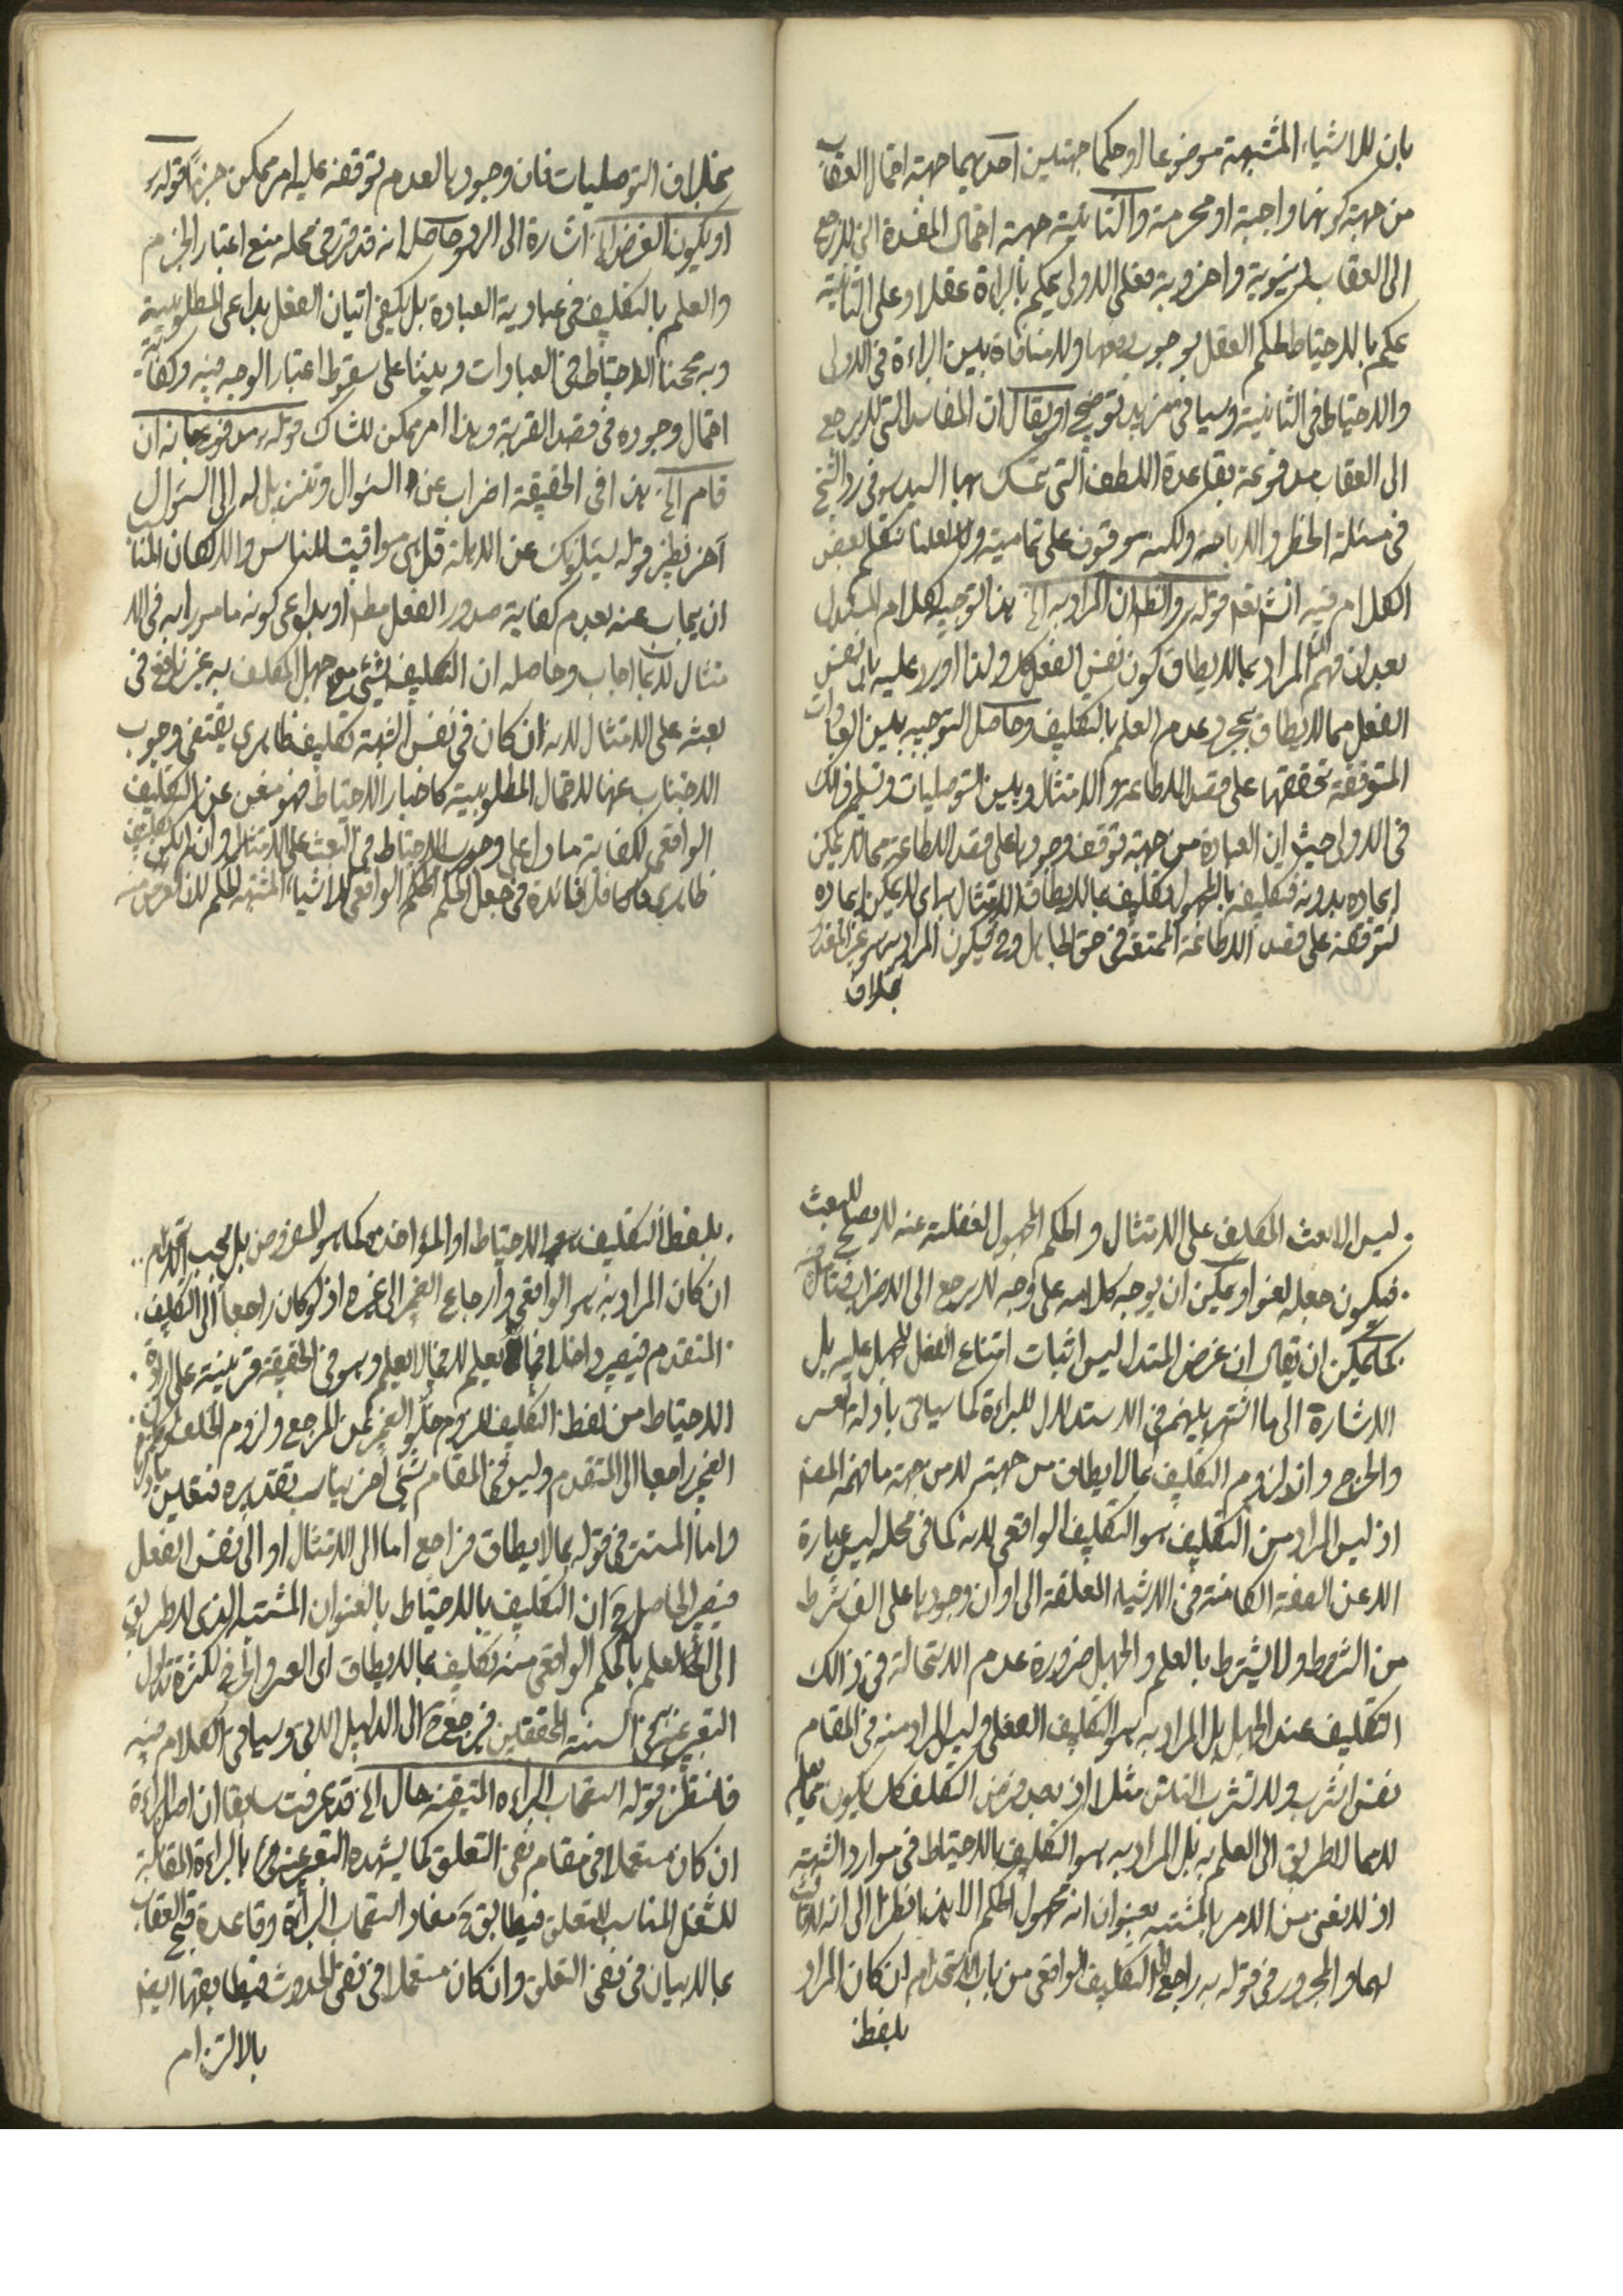 بان للاشياء المشتبهة موضوعا او حكما جهتين احديهما جهة احتمال العقاب
من جهة كونها واجبة او محرمة والثانية جهة احتمال المفسدة التي لا ترجع
الى العقاب دنيوية واخروية فعلى الاولى يحكم بالبراءة عقلا وعلى الثانية
يحكم بالاحتياط لحكم العقل بوجوب دفعها ولا منافاة بين البراءة في الاولى
والاحتياط في الثانية وسياتي مزيد توضيح او يقال ان المفاسد التي لا يرجع
الى العقاب مدفوعة بقاعدة اللطف التي تمسك بها السيد في رد الشيخ
في مسئلة الحظر والاباحة ولكنه موقوف على تماميته ولعلنا نتكلم بعض
الكلام فيه انش تع قوله ره والظ ان المراد به الخ هذا توجيه لكلام المستدل
بعد ان فهم المراد بما لا يطاق كون نفس الفعل كك ولذا اورد عليه بان نفس
الفعل مما لا يطاق بمجرد عدم العلم بالتكليف وحاصل التوجيه بين العبادات
المتوقفة تحققها على قصد الاطاعة والامتثال وبين التوصليات وتسليم ذلك
في الاولى حيث ان العبادة من جهة توقف وجودها على قصد الاطاعة مما لا يمكن
ايجاده بدونه فتكليفه بالمجهول تكليف بما لا يطاق الامتثال به اى لا يمكن ايجاده
لتوقفه على قصد الاطاعة الممتنع في حق الجاهل وح فيكون المراد به هو غير المقدور
بخلاف
بخلاف التوصليات فان وجودها لعدم توقفه عليه امر ممكن جزما قوله ره
او يكون الغرض الخ اشارة الى الرد وحاصله انه قد قرر في محله منع اعتبار الجزم
والعلم بالتكليف في عبادية العبادة بل يكفي اتيان الفعل بداعى المطلوبية
وبه صححنا الاحتياط في العبادات وبنينا على سقوط اعتبار الوجه فيه وكفاية
احتمال وجوده في قصد القربة وهذا امر ممكن للشاك قوله ره مدفوع بانه ان
قام الخ هذا في الحقيقة اضراب عن السؤال وتنزيل له الى السؤال
آخر نظير قوله يسئلونك عن الاهلة قل هى مواقيت للناس والا لكان المناسب
ان يجاب عنه بعدم كفاية صدور الفعل مط او بداعى كونه مامورا به في الا
متثال لا بما اجاب وحاصله ان التكليف بشئ مع جهل المكلف به غير نافع في
بعثه على الامتثال لانه ان كان في نفس الشبهة تكليف ظاهرى يقتضى وجوب
الاجتناب عنها لاحتمال المطلوبية كاخبار الاحتياط فهو مغن عن التكليف
الواقعى لكفاية ما دل على وجوب الاحتياط في البعث على الامتثال وان لم يكن تكليف
ظاهرى فلا فائدة في جعل الحكم الواقعى للاشياء المشتبه الحكم لان الغرض منه
ليس الا بعث المكلف على الامتثال والحكم المجهول لغفلته عنه لا يصلح للبعث
فيكون جعله لغوا ويمكن ان يوجه كلامه على وجه لا يرجع الى الاضراب فتامل
كما يمكن ان يقال ان غرض المستدل ليس اثبات امتناع الفعل للجهل عليه بل
الاشارة الى ما اشتهر بينهم في الاستدلال للبراءة كما سياتى بادلة العسر
والحرج وان لزوم التكليف بما لا يطاق من جهتهم لا من جهة ما فهمه المصنف
اذ ليس المراد من التكليف هو التكليف الواقعى لانه كما في محله ليس عبارة
الا عن الصفة الكامنة في الاشياء المعلقة الى اوان وجودها على الف شرط
من الشروط ولا يشترط بالعلم والجهل ضرورة عدم الاستحالة في ذلك
التكليف عند الجهل بل المراد به هو التكليف الفعلى وليس المراد منه في المقام
نفس الشرب ولا تشرب التتن مثلا اذ بعد فرض التكليف كك يكون مما يعلم
لا مما لا طريق الى العلم به بل المراد به هو التكليف بالاحتياط في موارد الشبهة
اذ لا نعنى من الامر بالمشتبه بعنوان انه مجهول الحكم الا هذا نظرا الى انه لا ثالث
لهما والمجرور في قوله به راجع الى التكليف الواقعى من باب الاستخدام ان كان المراد
بلفظ
بلفظ التكليف هو الاحتياط او المؤاخذة كما هو المفروض بل يجب التزام
ان كان المراد به هو الواقعى وارجاع الضمير الى غيره اذ لو كان راجعا الى التكليف
المتقدم فيصير داخلا فيما يعلم لا فيما لا يعلم وهو في الحقيقة قرينة على ارادة
الاحتياط من لفظ التكليف للزوم خلو الضمير عن المرجع ولزوم الخلف
الضمير راجعا الى المتقدم وليس في المقام شئ آخر يناسب تقديره فتعين
واما المستتر في قوله بما لا يطاق فراجع اما الى الامتثال او الى نفس الفعل
فيصير الحاصل ح ان التكليف بالاحتياط بالعنوان المشتبه الذى لا طريق
الى العلم بالحكم الواقعى منه تكليف بما لا يطاق اى العسر والحرج لكثرة تداول
التعبير عنه في السنة المحققين فمرجعه ح الى الدليل الاتى وسياتى الكلام فيه
فانتظر قوله استصحاب البراءة المتيقنة حال الخ قد عرفت سابقا ان اصل البراءة
ان كان مستعملا في مقام نفى التعلق كما يشهده التعبير عنه بالبراءة المقابلة
للشغل المناسب للتعلق فيطابق ح مفاد استصحاب البراءة وقاعدة قبح العقاب
بما لا بيان في نفى التعلق وان كان مستعملا في نفى الحدوث فيطابقها ايضا
بالالتزام